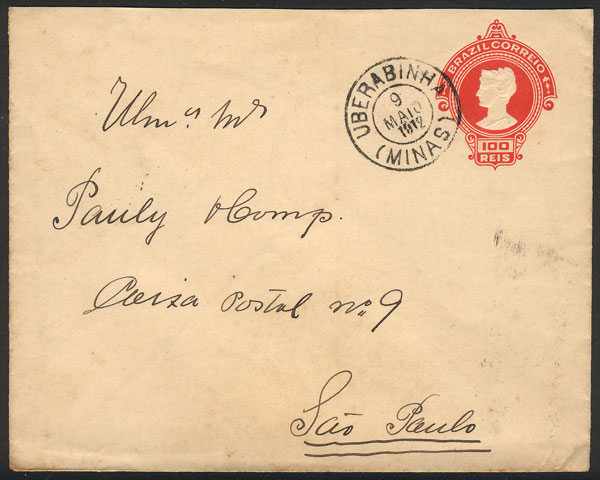 BRAZIL CORREIO
100
REIS
UBERABINHA
9
MAIO
1912
(MINAS)
Pauly & Comp.
Caixa Postal nº 9
São Paulo